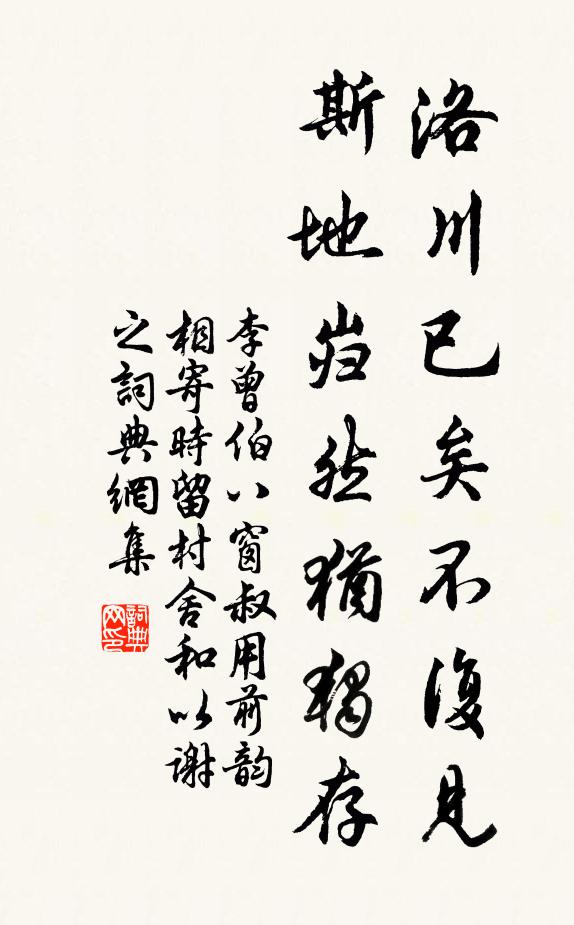 洛川已矣不復見
斯地岿然猶獨存
李曾伯八窗叔用前韵
相寄時留村舍和以謝
之詞典網集
詞典
网印